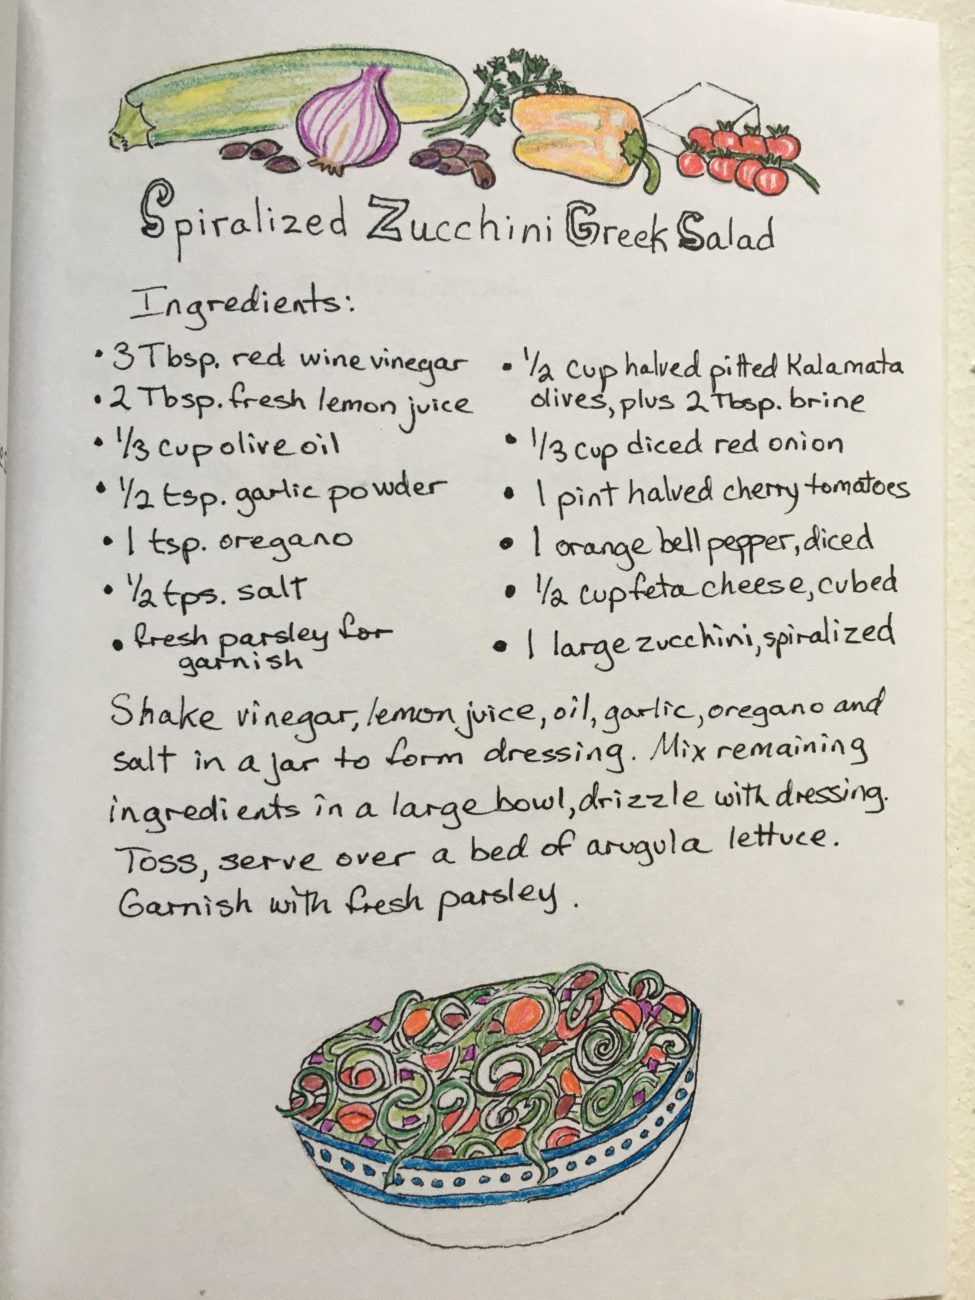 Spiralized Zucchini Greek Salad
Ingredients:
• 3 Tbsp. red wine vinegar
• 2 Tbsp. fresh lemon juice
• 1/3 cup olive oil
• 1/2 tsp. garlic powder
• 1 tsp. oregano
• 1/2 tps. salt
• fresh parsley for
garnish
• 1/2 cup halved pitted Kalamata
olives, plus 2 Tbsp. brine
• 1/3 cup diced red onion
• 1 pint halved cherry tomatoes
• 1 orange bell pepper, diced
• 1/2 cup feta cheese, cubed
• 1 large zucchini, spiralized
Shake vinegar, lemon juice, oil, garlic, oregano and
salt in a jar to form dressing. Mix remaining
ingredients in a large bowl, drizzle with dressing.
Toss, serve over a bed of arugula lettuce.
Garnish with fresh parsley.